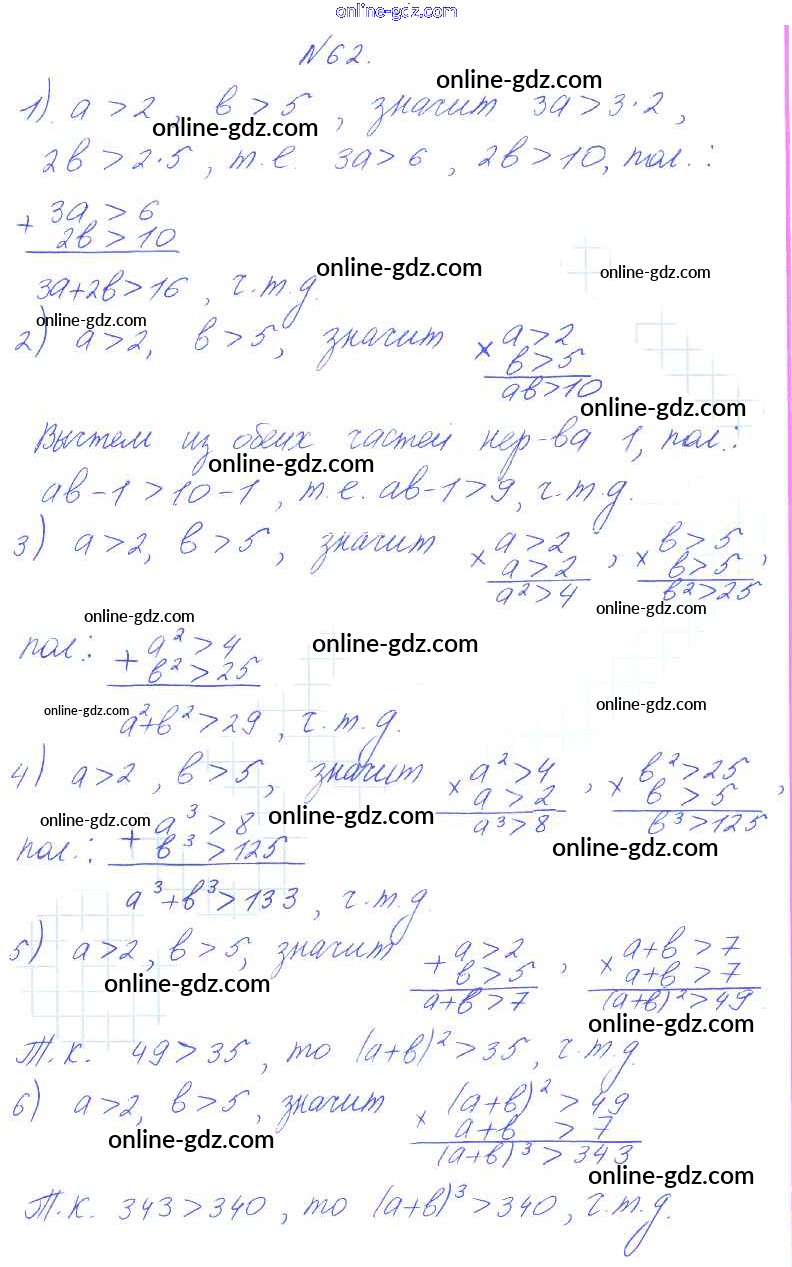 online-gdz.com
N62.
online-gdz.com
1) a > 2, в > 5, значит 3a > 3·2,
online-gdz.com
2в > 2·5, т.е. 3a > 6, 2в > 10, пол.:
+ 3a > 6
2в > 10
online-gdz.com
online-gdz.com
3a+2в > 16, ч.т.д.
online-gdz.com
2) a > 2, в > 5, значит × a > 2
в > 5
aв > 10
online-gdz.com
Вычтем из обеих частей нер-ва 1, пол.:
online-gdz.com
aв - 1 > 10 - 1, т.е. aв - 1 > 9, ч.т.д.
3) a > 2, в > 5, значит × a > 2, × в > 5,
a > 2 в > 5
a² > 4 в² > 25
online-gdz.com
online-gdz.com
пол.: + a² > 4
online-gdz.com
в² > 25
online-gdz.com
online-gdz.com
a²+в² > 29, ч.т.д.
4) a > 2, в > 5, значит × a² > 4, × в² > 25,
a > 2 в > 5
a³ > 8 в³ > 125
online-gdz.com
online-gdz.com
пол.: + a³ > 8
в³ > 125
online-gdz.com
a³+в³ > 133, ч.т.д.
5) a > 2, в > 5, значит + a > 2, × a+в > 7
в > 5 a+в > 7
a+в > 7 (a+в)² > 49
online-gdz.com
online-gdz.com
Т.к. 49 > 35, то (a+в)² > 35, ч.т.д.
6) a > 2, в > 5, значит × (a+в)² > 49
a+в > 7
online-gdz.com
(a+в)³ > 343
online-gdz.com
Т.к. 343 > 340, то (a+в)³ > 340, ч.т.д.